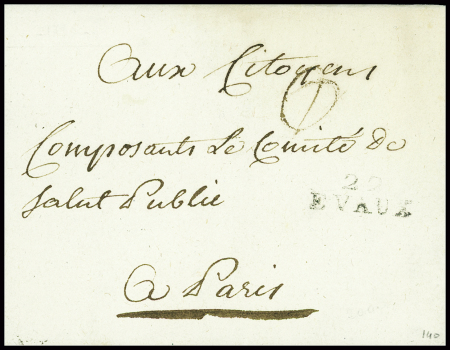 Aux Citoyens
Composants Le Comité de
Salut Public
22
EVAUX
A Paris
140